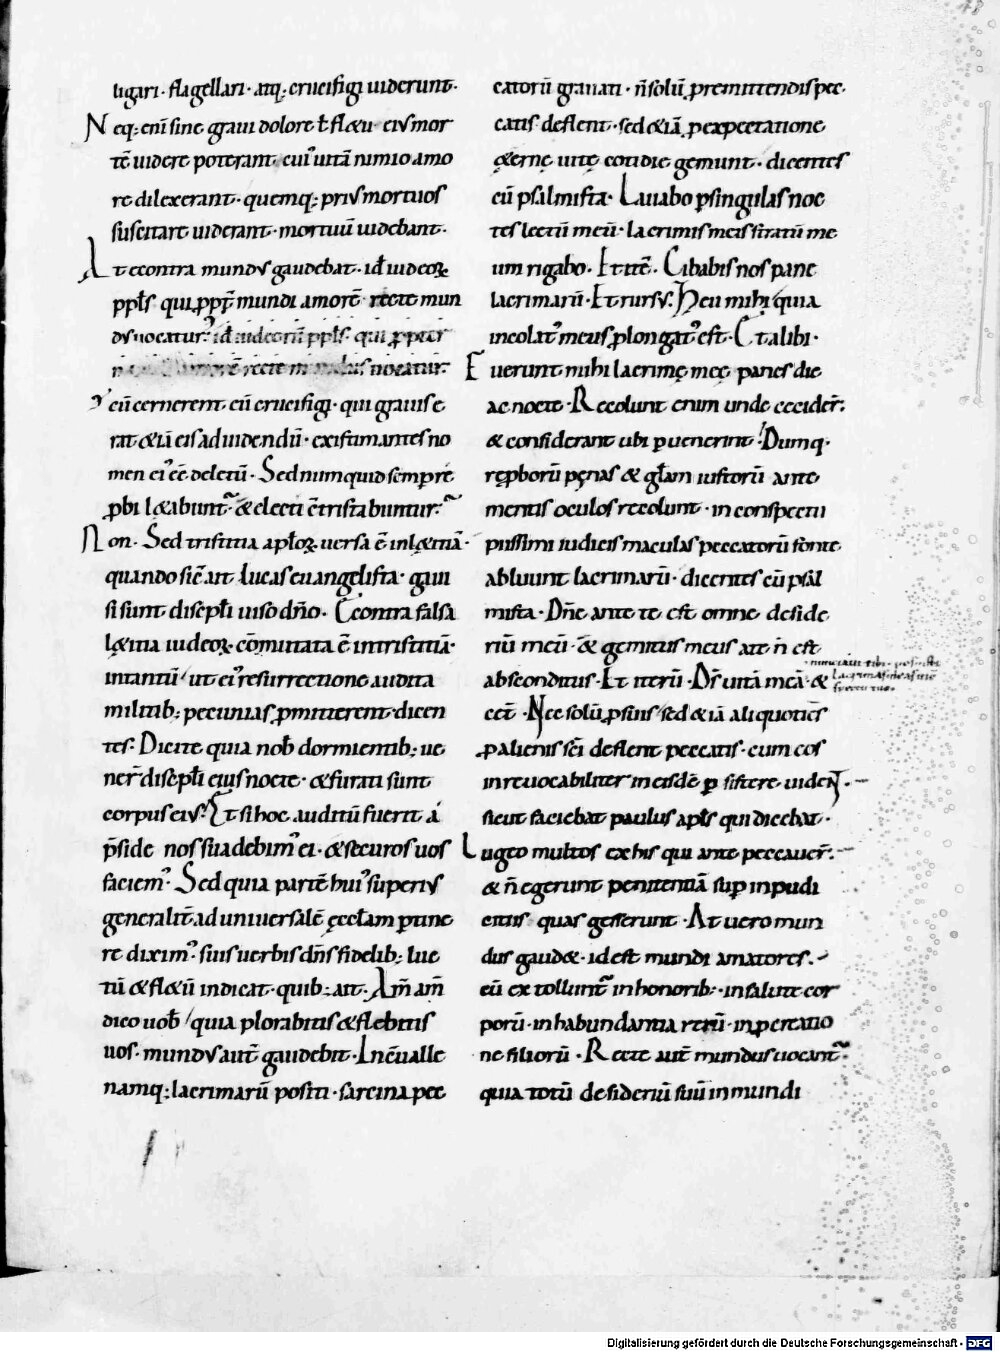 ligari · flagellari · atq; crucifigi uiderunt ·
Neq; eni͂ sine graui dolore t̄ fl&u · eiꝰ mor
tē uidere poterant, cuiꝰ uitā nimio amo
re dilexerant · quemq; priꝰ mortuos
suscitare uiderant · mortuū uidebant ·
At econtra mundꝰ gaudebat · id̄ iudeoꝝ
ppl̄s qui ꝓpt̄ mundi amorē · recte mun
dꝰ uocatur · id̄ iudeorū ppl̄s · qui ꝓpter
recte mundus uocatur ·
eū cernerent eū crucifigi · qui grauis e
rat &iā eis ad uidendū · existimantes no
men eiꝰ ēē deletū · Sed numquid semper re
ꝓbi l&abunt̃ · & electi c̄tristabuntur ·
Non · Sed tristitia apl̄oꝝ uersa ē in l&itiā ·
quando sic̄ ait Lucas euangelista · gaui
si sunt discipl̄i uiso dño · Econtra falsa
l&itia iudeoꝝ cōmutata ē in tristitiā ·
in tantū / ut eiꝰ resurrectione audita
militib; pecunias ꝓmitterent · dicen
tes · Dicite quia nob̄ dormientib; ue
ner̄ discipl̄i eius nocte · & furati sunt
corpus eiꝰ · Et si hoc auditū fuerit á
p̄side nos suadebimꝰ ei · & securos uos
faciemꝰ · Sed quia partē huiꝰ superiꝰ
generalit̄ ad uniuersalē ęccl̄am ꝑtine
re diximꝰ · suis uerbis dn̄s fidelib; luc
tū & fl&ū indicat · quib; ait · Am̄ am̄
dico uob̄ / quia plorabitis & flebitis
uos · mundꝰ aut̄ gaudebit · In c̄ualle
namq; lacrimarū positi · sarcina pec
catorū grauati · n̄ solū p remittendis pec
catis deflent · sed &iā p expectatione
&ernę uitę cotidie gemunt · dicentes
cū psalmista · Lauabo ꝑ singulas noc
tes lectū meū · lacrimis meis stratū me
um rigabo · Et itē · Cibabis nos pane
lacrimarū · Et rursꝰ · Heu mihi quia
incolatꝰ meus ꝓlongatꝰ est · Et alibi ·
Fuerunt mihi lacrimę meę panes die
ac nocte · Recolunt enim unde cecider̄ ·
& considerant ubi ꝑuenerint · Dumq·
reꝓborū pęnas & gl̄am iustorū ante
mentis oculos recolunt · in conspectu
piissimi iudicis maculas peccatorū fonte
abluunt lacrimarū · dicentes cū psal
mista · Dn̄e ante te est omne deside
riū meū · & gemitus meus a te n̄ est
absconditus · Et iterū · Ds̄ uitā meā · &
nuntiaui tibi · posuisti
lacrimas meas in c
spectu tuo ·
cet̄ · Nec solū p suis sed &iā aliquoties
p alienis sc̄i deflent peccatis · cum eos
inreuocabiliter in eisdē ꝑsistere uident ·
sicut faciebat paulus apl̄s qui dicebat ·
Lugeo multos ex his qui ante peccauer̄ ·
& n̄ egerunt penitentiā sup inpudi
citiis quas gesserunt · At uero mun
dus gaud& · id est mundi amatores ·
cū extollunt̃ in honorib; · in salute cor
porū · in habundantia rerū · in ꝓcreatio
ne filiorū · Recte aut̄ mundus uocant̃
quia totū desideriū suū in mundi
Digitalisierung gefördert durch die Deutsche Forschungsgemeinschaft - DFG